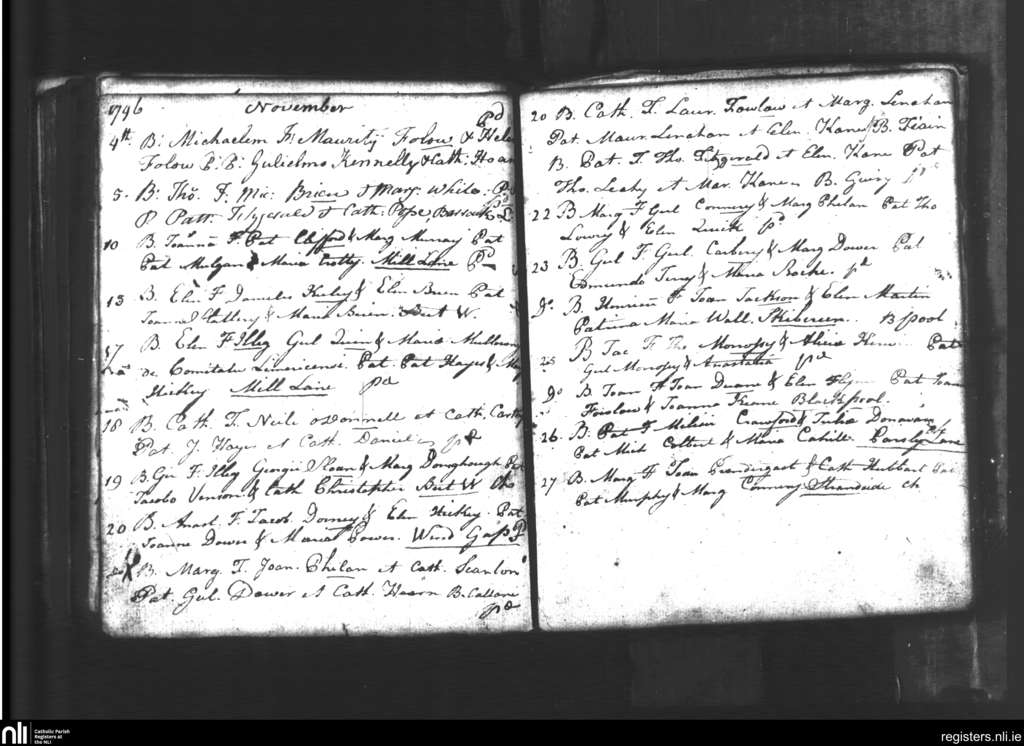 1796 November
Pd
4th B: Michaelem F: Mauritij Folow &
Folow P: P: Gulielmo Kennelly & Cath: Hoar
5. B: Tho. F. Mic: Brien & Mary: White:
P Patt: Fitzgerald & Cath. Pope,
10 B. Joanna F. Pat Clifford & Marg Murray Pat
Pat Mulgan & Maria Crotty. Mill Lane Pd
13 B. Elen F Daniel & Elen Brien Pat
& Maria Brien. W.
17 B. Elen F Illeg Gul Quin & Maria
de Comitatu Limericense. Pat. Pat Hayes &
Hickey Mill Lane pd
18 B. Cath. F. Neile oDonnell et Cath.
Pat. J. Hayes et Cath. Daniel pd
19 B. Gul F Illeg Georgii Sloan & Marg Donoghough
Jacobo & Cath Christopher W.
20 B. Anas. F. Jacob. & Elen Hickey. Pat
Joanne Dower & Maria Power. Wind Gap P
B. Marg. F. Joan. Phelan et Cath. Scanlon
Pat. Gul. Dower et Cath. Hearn B.
pd
20 B. Cath. F. Laur. Fowlow et Marg. Lenehan
Pat. Maur. Lenehan et Elen. Kane B.
B. Pat. F. Tho. Fitzgerald et Elen. Kane Pat
Tho. Leahy et Mar. Kane B. pd
22 B. Marg F Gul Connery & Marg Phelan Pat Tho
Lowry & Elen Quirk pd
23 B. Gul F Gul. Carbery & Marg Dower Pat
Edmundo & Maria Roche. pd
do. B. F Joan Jackson & Elen Martin
Maria Wall. Skibereen. Bpool
25 B Jac F Tho & Alicia
Gul & Anastatia pd
do B Joan F Joan Duane & Elen Flynn Pat
& Joanna Keane Blackpool.
26. B. Pat F Crawford & Julia Donovan
Pat Mich Colbert & Maria Cahill. Parsly Lane
27 B. Marg F Joan Prendergast & Cath Hubbart
Pat Murphy & Marg Connery Strandside ch
nli
Catholic Parish
Registers at
the NLI
registers.nli.ie